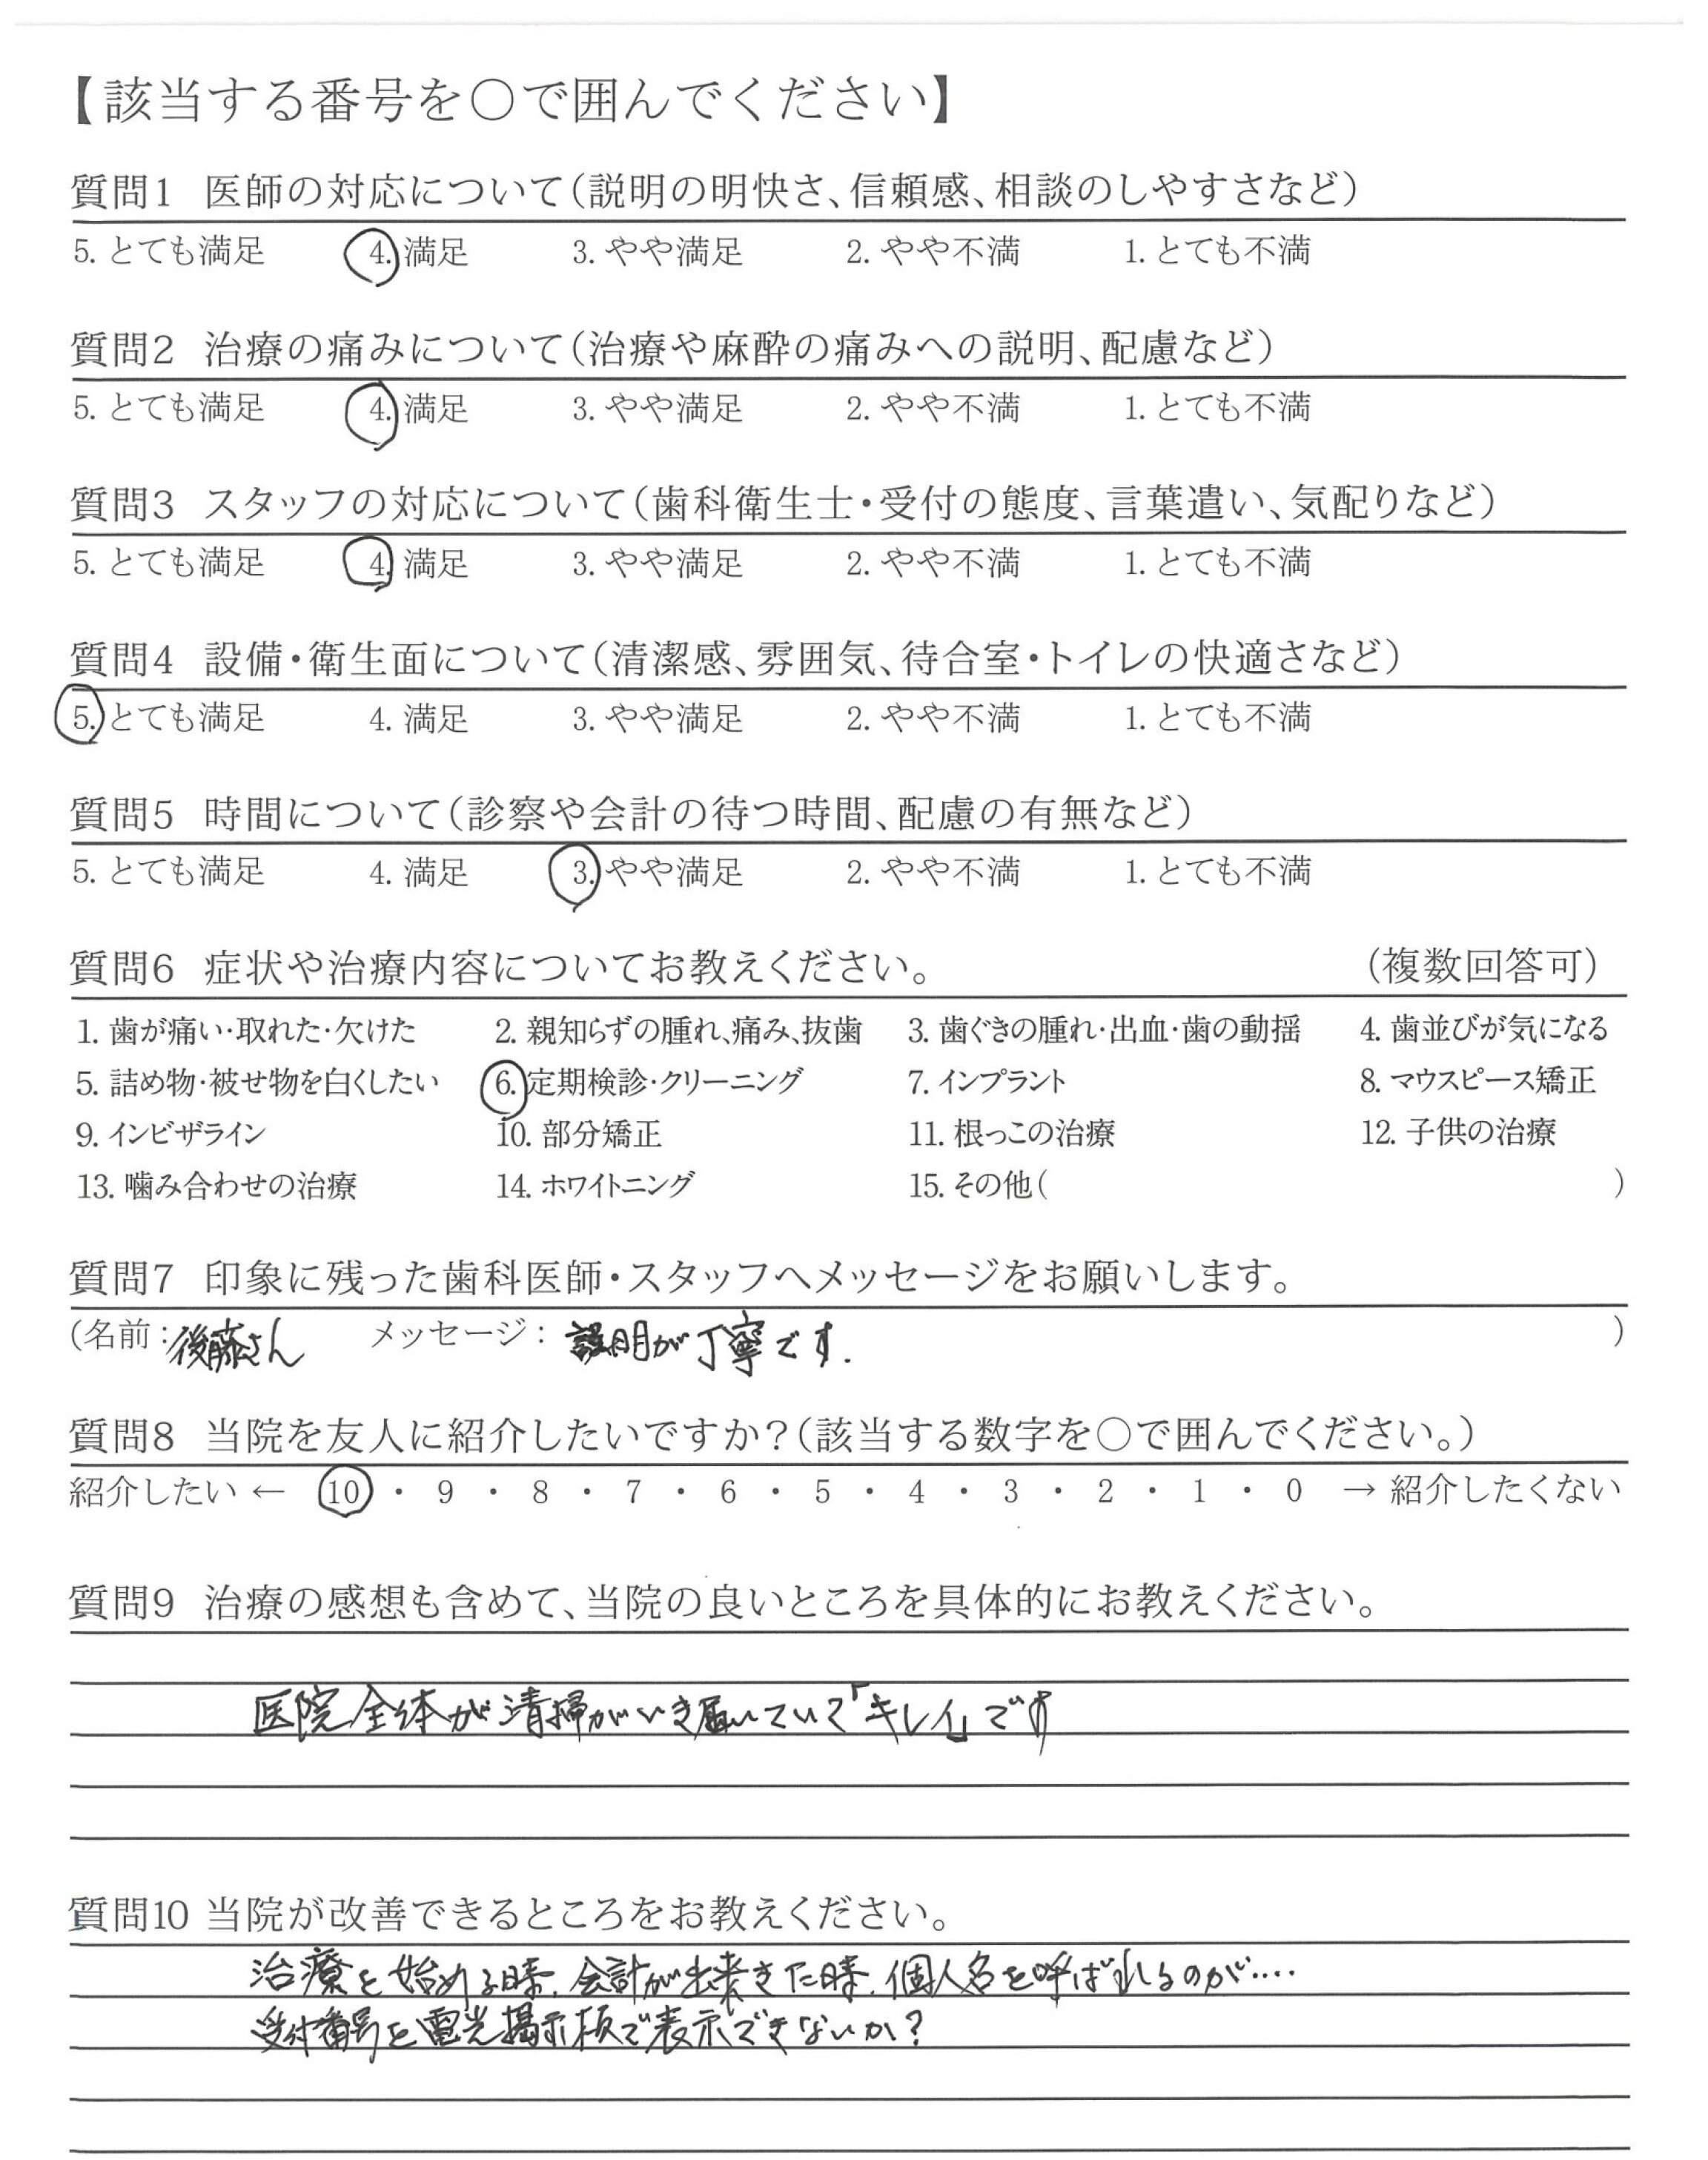 【該当する番号を〇で囲んでください】
質問1 医師の対応について(説明の明快さ、信頼感、相談のしやすさなど)
5. とても満足 4. 満足 3. やや満足 2. やや不満 1. とても不満
質問2 治療の痛みについて(治療や麻酔の痛みへの説明、配慮など)
5. とても満足 4. 満足 3. やや満足 2. やや不満 1. とても不満
質問3 スタッフの対応について(歯科衛生士・受付の態度、言葉遣い、気配りなど)
5. とても満足 4. 満足 3. やや満足 2. やや不満 1. とても不満
質問4 設備・衛生面について(清潔感、雰囲気、待合室・トイレの快適さなど)
5. とても満足 4. 満足 3. やや満足 2. やや不満 1. とても不満
質問5 時間について(診察や会計の待つ時間、配慮の有無など)
5. とても満足 4. 満足 3. やや満足 2. やや不満 1. とても不満
質問6 症状や治療内容についてお教えください。 (複数回答可)
1. 歯が痛い・取れた・欠けた 2. 親知らずの腫れ、痛み、抜歯 3. 歯ぐきの腫れ・出血・歯の動揺 4. 歯並びが気になる
5. 詰め物・被せ物を白くしたい 6. 定期検診・クリーニング 7. インプラント 8. マウスピース矯正
9. インビザライン 10. 部分矯正 11. 根っこの治療 12. 子供の治療
13. 噛み合わせの治療 14. ホワイトニング 15. その他( )
質問7 印象に残った歯科医師・スタッフへメッセージをお願いします。
(名前:後藤さん メッセージ: 説明が丁寧です. )
質問8 当院を友人に紹介したいですか?(該当する数字を〇で囲んでください。)
紹介したい ← 10 ・ 9 ・ 8 ・ 7 ・ 6 ・ 5 ・ 4 ・ 3 ・ 2 ・ 1 ・ 0 → 紹介したくない
質問9 治療の感想も含めて、当院の良いところを具体的にお教えください。
医院全体が清掃がいき届いていて「キレイ」です
質問10 当院が改善できるところをお教えください。
治療を始める時、会計が出来きた時、個人名を呼ばれるのが‥‥
受付番号を電光掲示板で表示できないか?